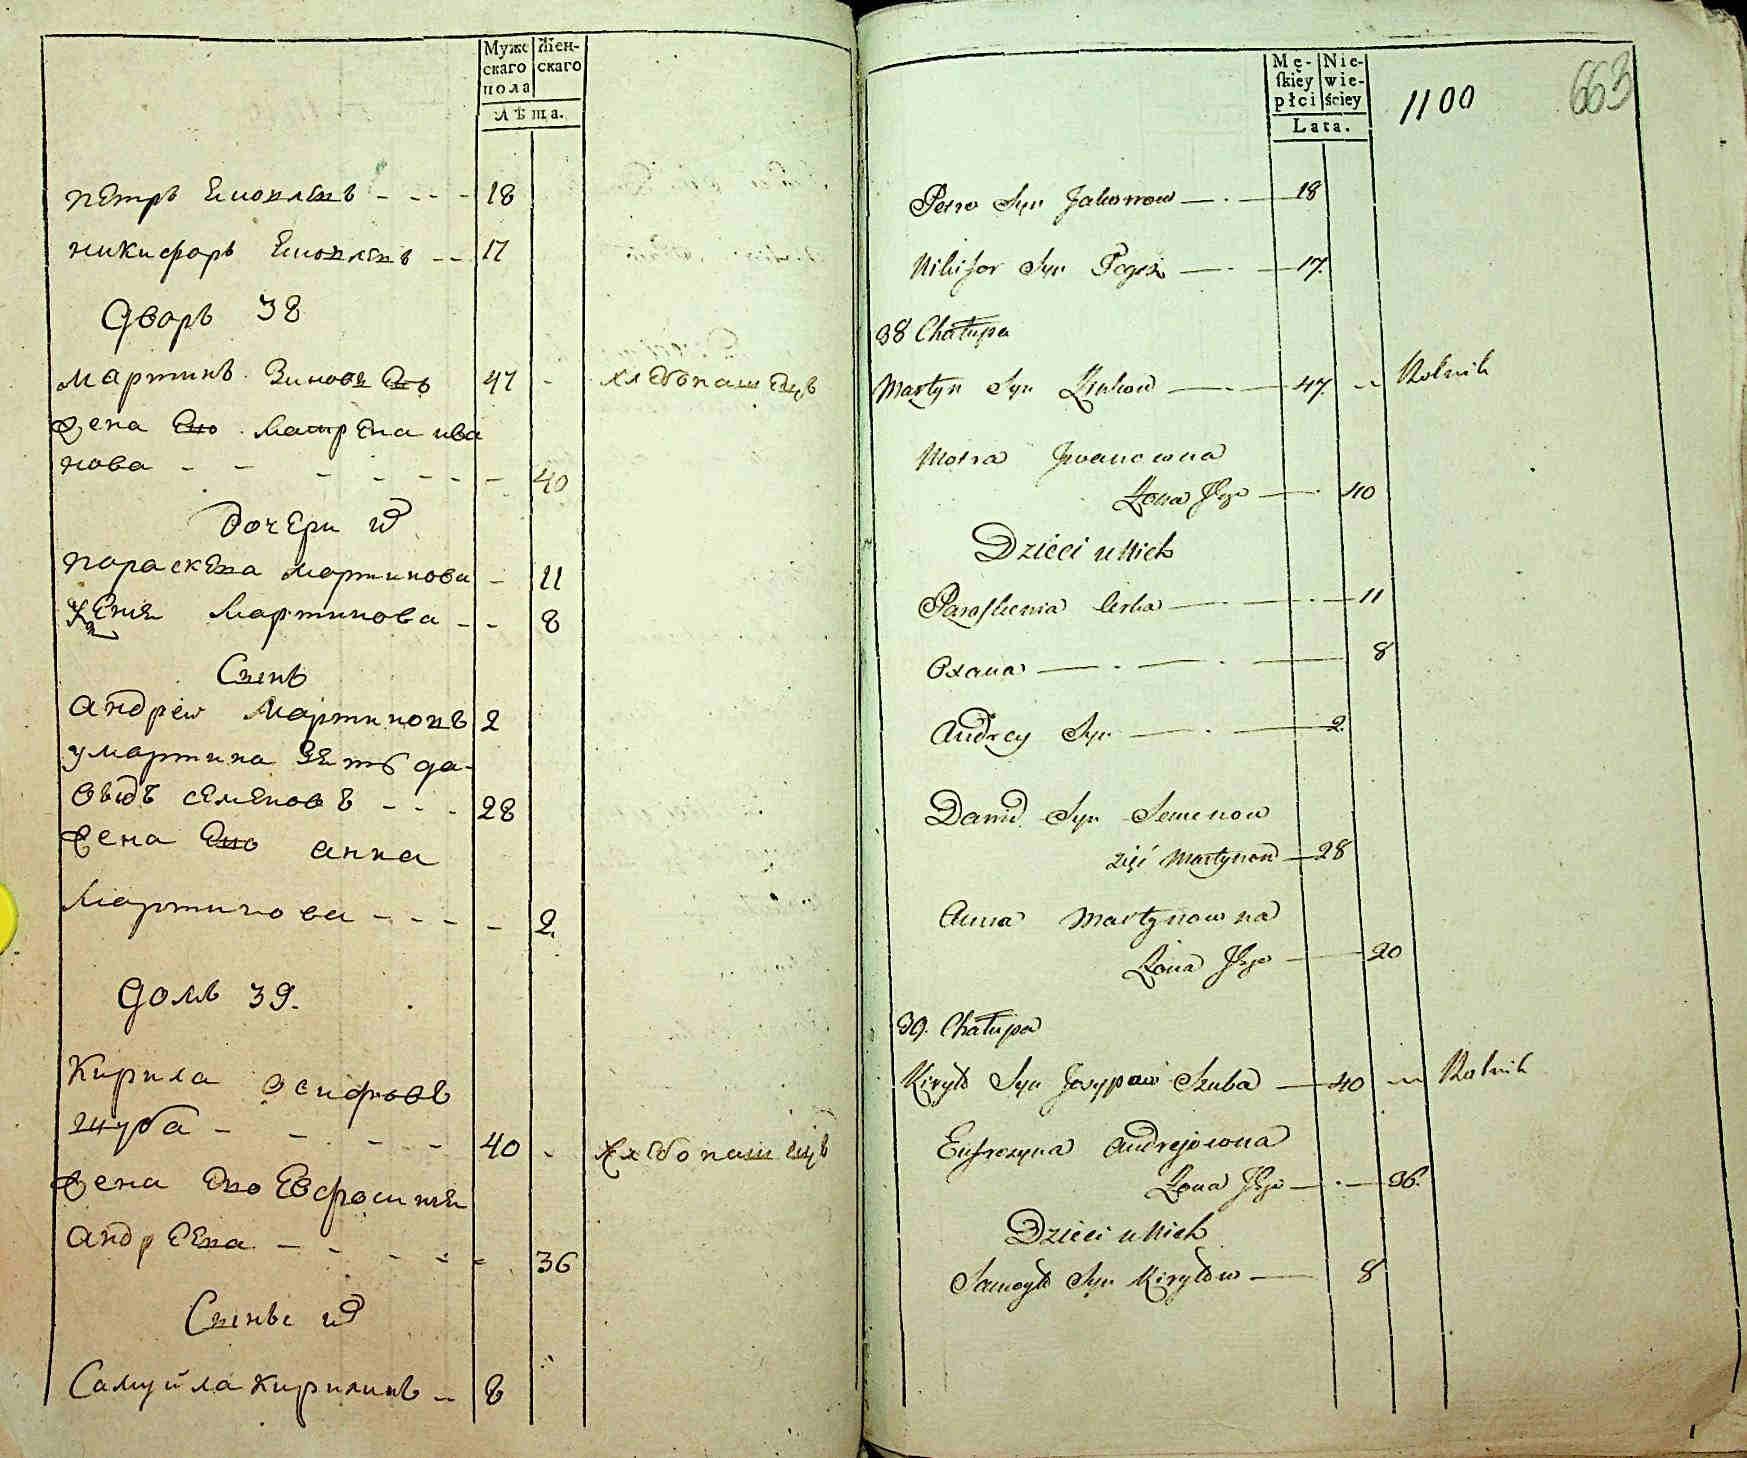 Мужс
скаго
пола
Жен-
скаго
Лѣта.
Петръ - - - 18
никифоръ - - 17
Дворъ 38
мартинъ 47 - хлебопашецъ
жена его матрена ива
нова - - - - - - 40
дочери их
параскева мартинова - 11
Ксения мартинова - - 8
Сынъ
андреи мартиновъ 2
у мартина зять да-
выдъ семеновъ - - - 28
жена его анна
мартинова - - - - 2.
Домъ 39.
Кирила осифовъ
шуба - - - - 40 - хлебопашецъ
жена его Евфросиния
андреева - - - - - 36
Сыны их
Самуйла кирилинъ - 8
Mę-
skiey
płci
Nie-
wie-
ściey
Lata.
1100
663
Petro Syn — · — 18
Nikifor Syn — · — 17.
38 Chałupa
Martyn Syn — · — 47. - Rolnik
Motra Iwanowna
Żona Jego — · 40
Dzieci u Nich
Paraskewia Corka — · — · — 11
Oxana — · — · — 8
Andrey Syn — · — 2.
Dawid Syn Semenow
zięć Martynow — 28
Anna Martynowna
Żona Jego — 20
39. Chałupa
Kiryło Syn Josypow Szuba — 40 - Rolnik
Eufrozyna Andrejowna
Żona Jego — · — 36.
Dzieci u Nich
Samoyło Syn Kiryłow — 8